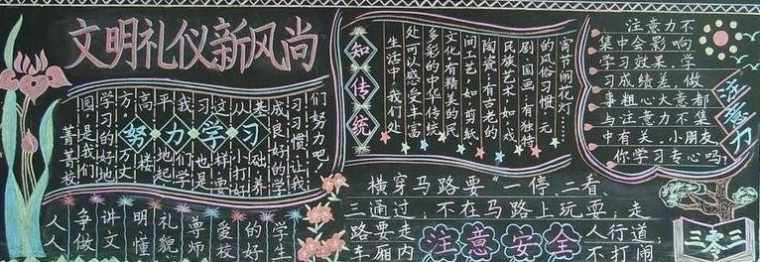 文明礼仪新风尚
菁菁校
园,是我们
学习的好地
方。万丈
高楼
平地起
我们学
习也是
这样,要
从小打好
基础,养
成良好的学
习习惯,让我
们努力吧!
努力学习
人人
争做
讲文
明懂
礼貌
尊师
爱校
的好
学生
知传统
生活中,我们处
处可以感受丰富
多彩的中华传统
文化,有精美的民
间工艺,如,剪纸
陶瓷,有古老的
民族艺术,如,戏
剧,国画,有独特
的风俗习惯,元
宵节闹花灯……
注意力不
集中会影响
学习效果,学
习成绩差,做
事粗心大意都
与注意力不集
中有关,小朋友
你学习专心吗?
注意力
横穿马路要“一停,二看,
三通过,不在马路上玩耍,走
路要走 人行道;
车厢内 不打闹
注意安全